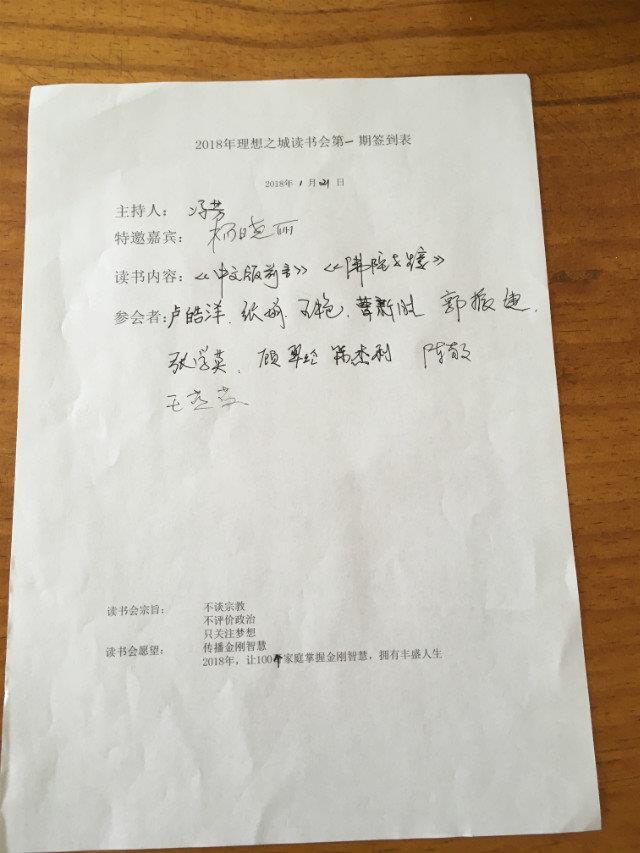 2018年理想之城读书会第一期签到表
2018年 1 月 21 日
主持人： 冯芳
特邀嘉宾： 杨晓丽
读书内容：《中文版前言》《佛陀之接》
参会者：卢皓洋、张杨、王艳、曹新胜 郭振建、
张学英、顾翠玲 杰利 陈敏
王
读书会宗旨： 不谈宗教
不评价政治
只关注梦想
读书会愿望： 传播金刚智慧
2018年，让100个家庭掌握金刚智慧，拥有丰盛人生